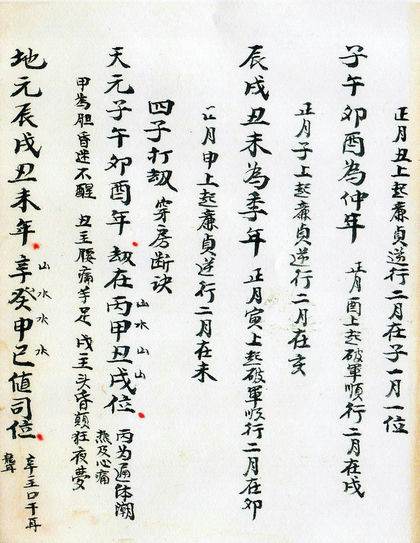 正月丑上起廉貞逆行二月在子一月一位
子午卯酉為仲年 正月酉上起破軍順行二月在戌
正月子上起廉貞逆行二月在亥
辰戌丑未為季年 正月寅上起破軍順行二月在卯
正月申上起廉貞逆行二月在未
四子打劫 穿房断诀
天元子午卯酉年 劫在丙甲丑戌位 丙為遍体潮热及心痛
山水山山
甲為胆昏迷不醒 丑主腰痛手足 戌主头昏顛狂夜夢
地元辰戌丑未年 辛癸申巳值司位 辛主口干耳聾
山水水水